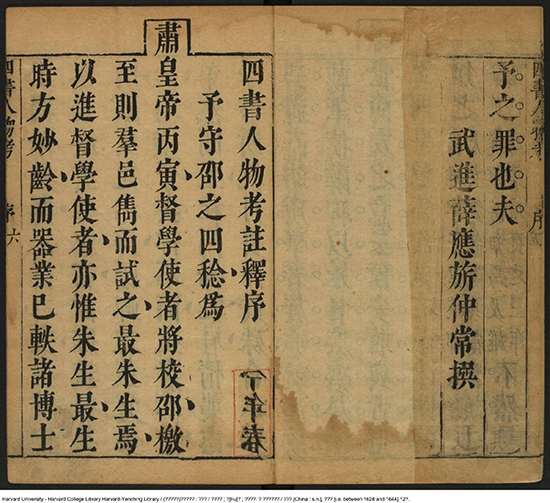 四書人物考 序
予之罪也夫
武進薛應旂仲常撰
四書人物考註釋序
予守邵之四稔爲
肅皇帝丙寅督學使者將校邵檄
至則羣邑雋而試之最朱生焉
以進督學使者亦惟朱生最生
時方妙齡而器業已軼諸博士
四書人物考 序 六
Harvard University - Harvard College Library Harvard-Yenching Library / (??????)????? : ??? / ???? ; ?[Fu]? ; ????. ? ?????? / ??? [China : s.n.], ??? [i.e. between 1628 and 1644] 12?.